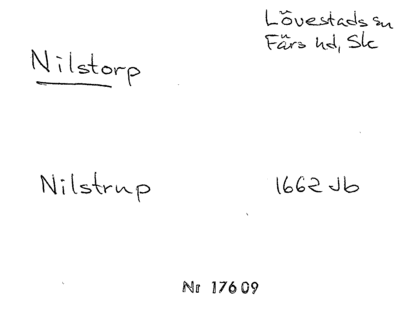 Lövestads sn
Färs hd, Sk
Nilstorp
Nilstrup 1662 Jb
Nr 17609